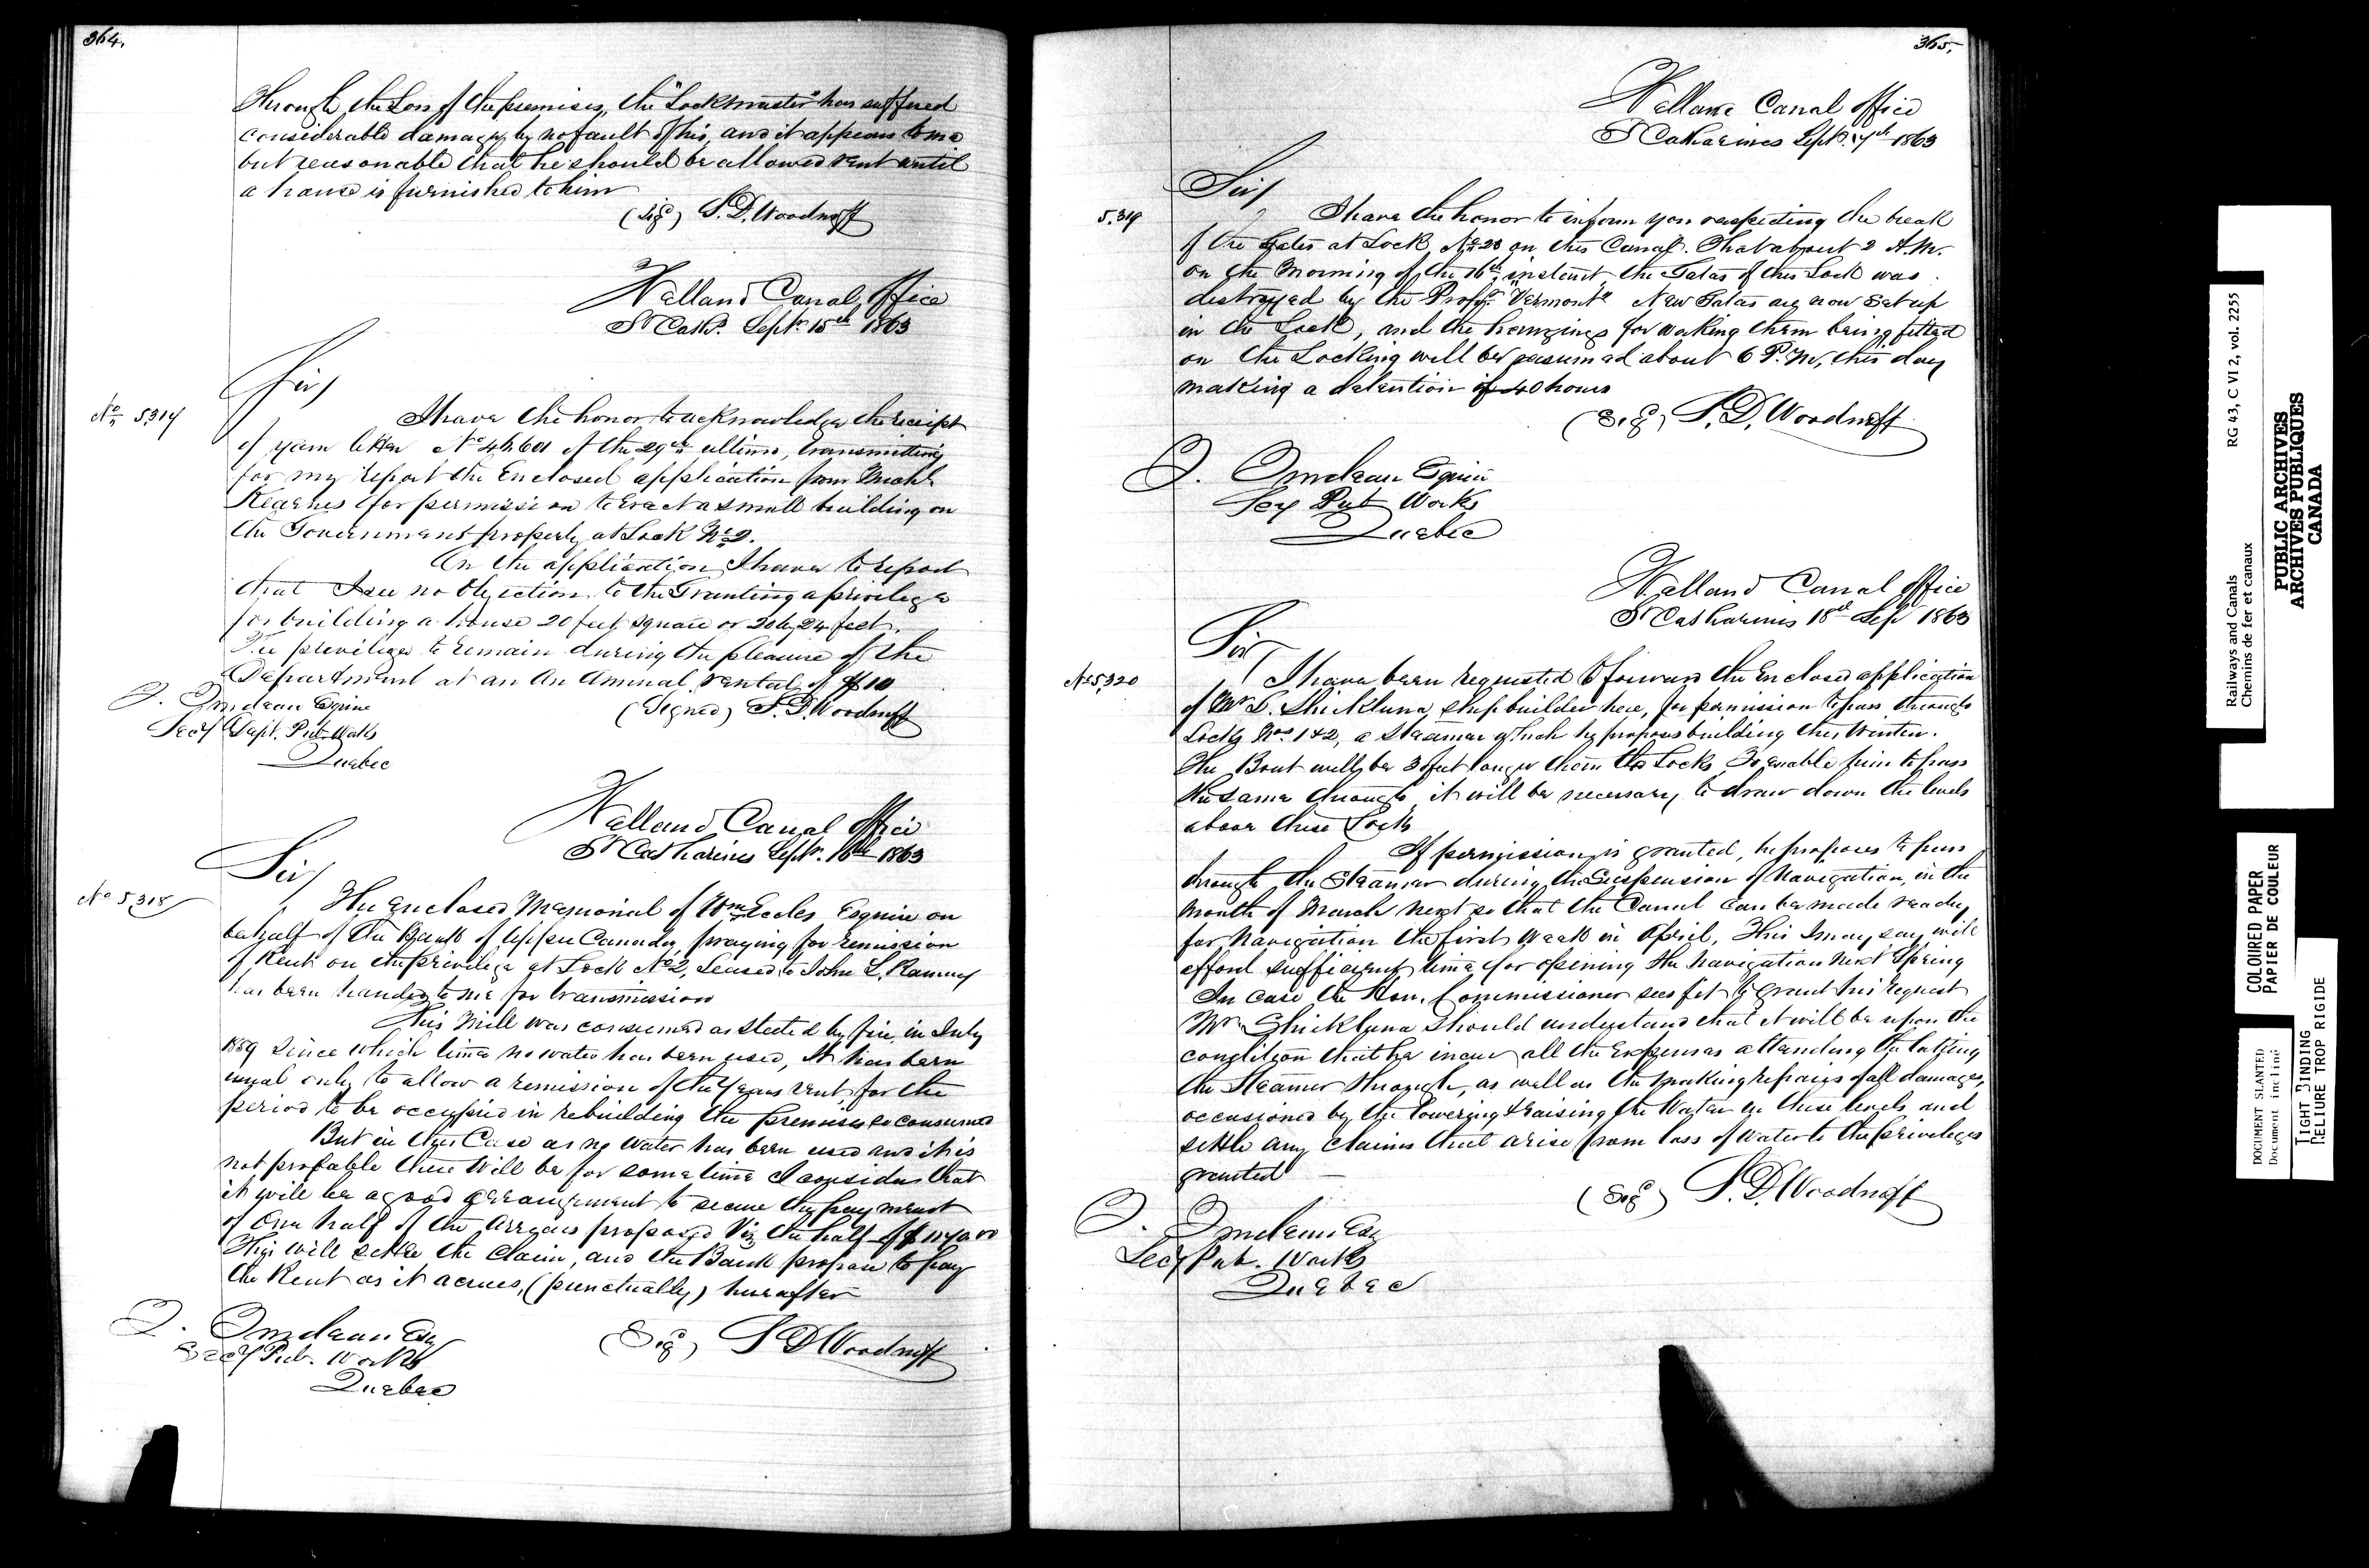 364.
Through the Loss of the premises, the "Lockmaster" has suffered
considerable damage, by no fault of his, and it appears to me
but reasonable that he should be allowed rent until
a house is furnished to him
(Sigd) S. D. Woodruff
Welland Canal Office
St Cath. Septr 15th 1863
Sir,
No 5317
I have the honor to acknowledge the receipt
of your letter No 44601 of the 29th ultimo, transmitting
for my report the Enclosed application from Michl
Kearnes for permission to Erect a small building on
the Government property at Lock No 2.
On the application I have to report
that I see no objection to the Granting a privilege
for building a house 20 feet square or 20 by 24 feet.
The privilege to remain during the pleasure of the
Department at an An Annual rental of $10
(Signed) S. D. Woodruff
Esquire
Secy Dept. Pub. Works
Quebec
Welland Canal Office
St Catharines Septr. 16th 1863
Sir,
No 5,318
The Enclosed Memorial of Wm Eccles Esquire on
behalf of the Bank of Upper Canada, praying for remission
of Rent on the privilege at Lock No 2, Leased to John L. Ranney
has been handed to me for transmission
This Mill was consumed as stated by fire, in July
1859 Since which time no water has been used, It has been
usual only to allow a remission of the Years rent, for the
period to be occupied in rebuilding the premises so consumed
But in this Case as no water has been used and it is
not probable there will be for some time I consider that
it will be a good arrangement to secure the payment
of One half of the Arrears proposed Viz the half of
This will settle the Claim, and the Bank propose to pay
the Rent as it acrues, (punctually) hereafter
Esq
Secy Pub. Works
Quebec
(Sigd) S D Woodruff
365.
Welland Canal Office
St Catharines Sept. 17th 1863
Sir,
5,319
I have the honor to inform you respecting the break
of the Gates at Lock No 28 on this Canal. That about 2 A.M.
on the Morning of the 16th instant, the Gates of this Lock was
destroyed by the Propr. "Vermont" New Gates are now Set up
in the Lock, and the hangings for working them being fitted
on the Locking will be resumed about 6 P.M, this day
making a detention of 40 hours
(Sigd) S. D. Woodruff
Esquire
Secy Pub Works
Quebec
Welland Canal Office
St Catharines 18th Sep 1863
Sir
No 5,320
I have been requested to forward the Enclosed application
of Mr L. Shickluna, ship builder here, for permission to pass through
Locks Nos. 1 & 2, a Steamer which he proposes building this Winter.
The Boat will be 3 feet longer than the Locks, To enable him to pass
the same through, it will be necessary to draw down the levels
above these Locks
If permission is granted, he proposes to pass
through the Steamer during the Suspension of Navigation, in the
month of March next so that the Canal can be made ready
for Navigation the first Week in April, This I may say will
afford sufficient time for opening the Navigation next Spring
In case the Hon. Commissioner sees fit to grant his request
Mr. Shickluna should understand that it will be upon the
condition that he incur all the Expenses attending the letting
the Steamer through, as well as the making repairs of all damages,
occasioned by the lowering & raising the Water in these levels and
settle any Claims that arise from loss of Water to the privileges
granted
(Sigd) S. D. Woodruff
Esq
Secy Pub. Works
Quebec
Railways and Canals
Chemins de fer et canaux
RG 43, C VI 2, vol. 2255
PUBLIC ARCHIVES
ARCHIVES PUBLIQUES
CANADA
COLOURED PAPER
PAPIER DE COULEUR
DOCUMENT SLANTED
Document incliné
TIGHT BINDING
RELIURE TROP RIGIDE